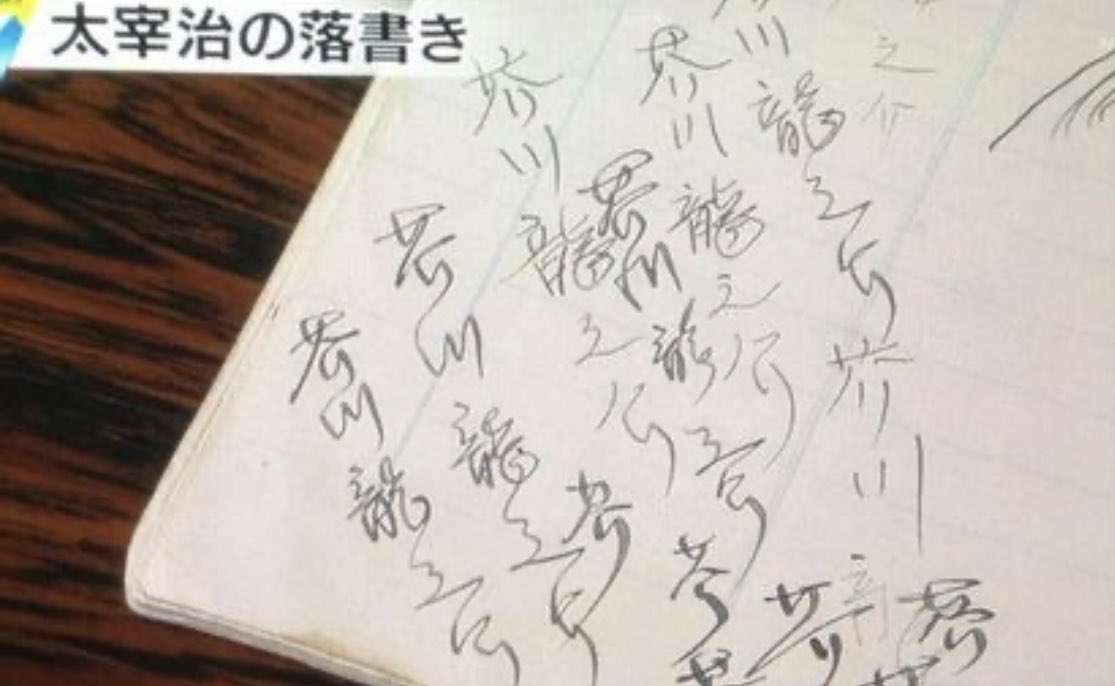 太宰治の落書き
之介
川龍之介
芥川
芥川龍之介
芥川龍之介
芥川龍之介
芥川龍之介
芥川龍之介
芥
芥
芥
芥